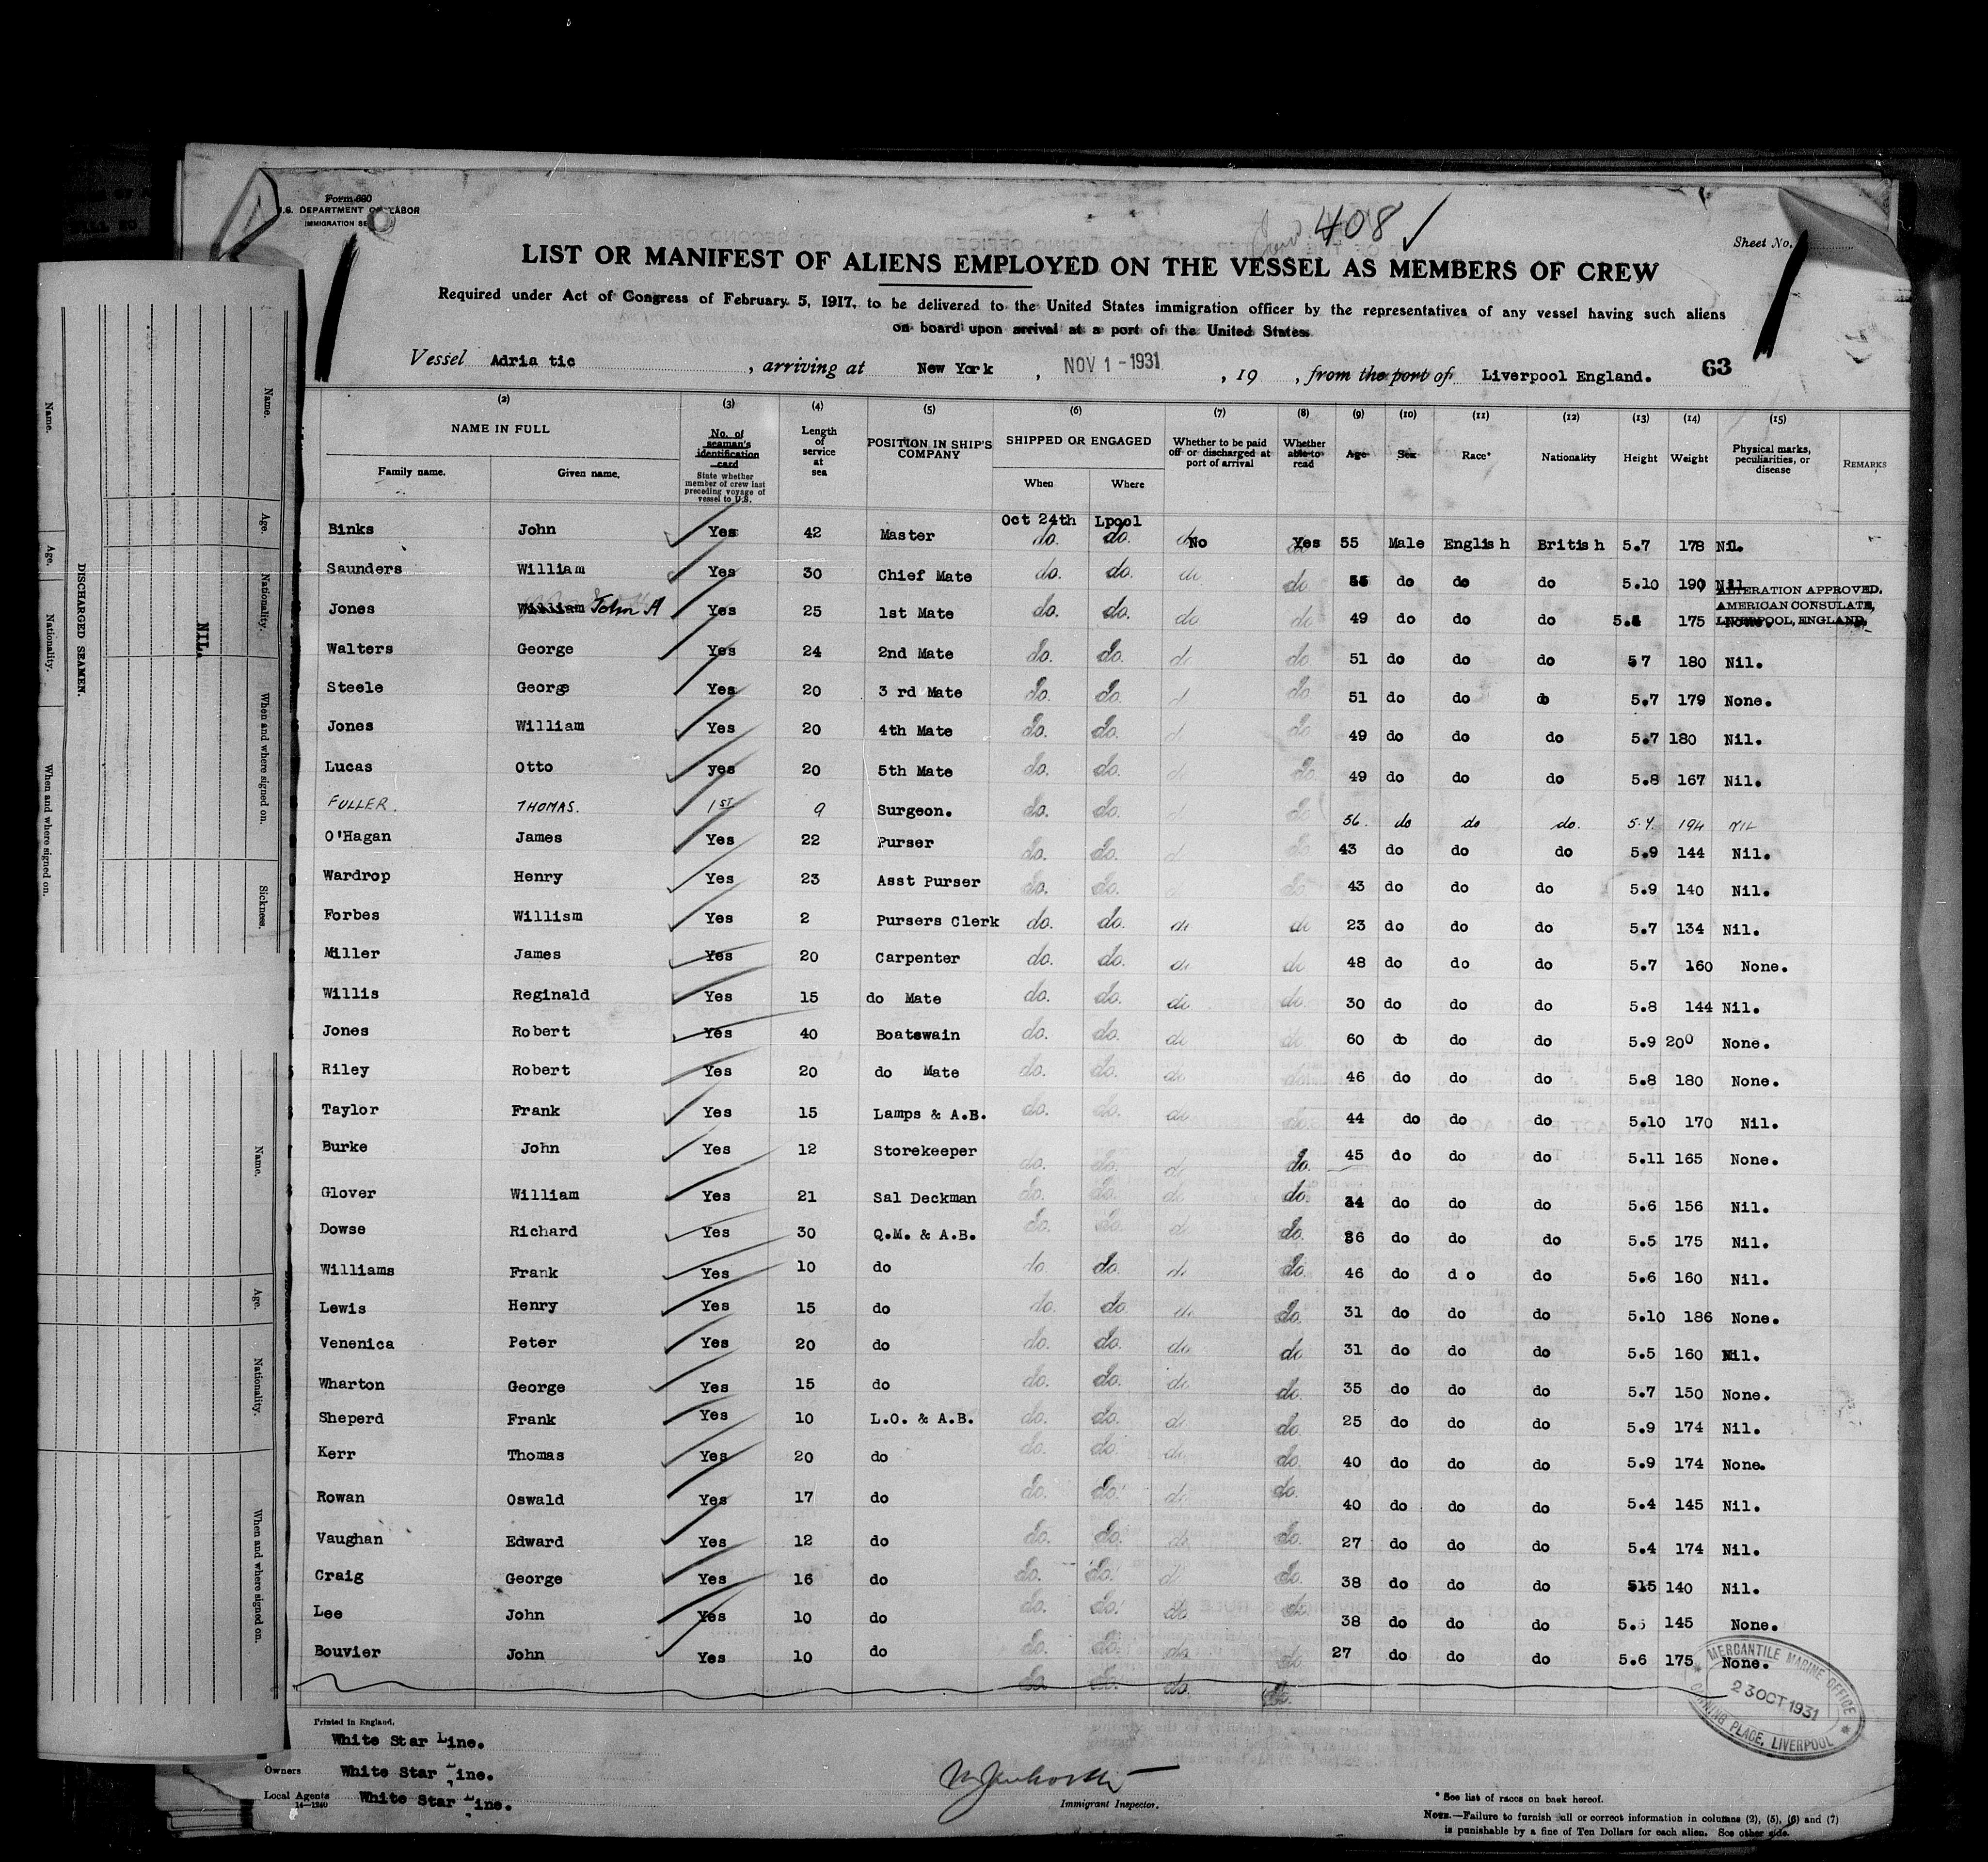 Form 680
U.S. DEPARTMENT OF LABOR
IMMIGRATION
408
Sheet No.
LIST OR MANIFEST OF ALIENS EMPLOYED ON THE VESSEL AS MEMBERS OF CREW
Required under Act of Congress of February 5, 1917, to be delivered to the United States immigration officer by the representatives of any vessel having such aliens
on board upon arrival at a port of the United States
Vessel Adria tic , arriving at New York , NOV 1 - 1931 , 19 , from the port of Liverpool England. 63
(2) (3) (4) (5) (6) (7) (8) (9) (10) (11) (12) (13) (14) (15)
NAME IN FULL
Family name. Given name.
No. of seaman's identification card
State whether member of crew last preceding voyage of vessel to U.S.
Length of service at sea
POSITION IN SHIP'S COMPANY
SHIPPED OR ENGAGED
When Where
Whether to be paid off or discharged at port of arrival
Whether able to read
Age Sex Race* Nationality Height Weight
Physical marks, peculiarities, or disease
REMARKS
Oct 24th Lpool
Binks John Yes 42 Master do. do. No Yes 55 Male English British 5.7 178 Nil.
Saunders William Yes 30 Chief Mate do. do. do do 55 do do do 5.10 190 Nil
ALTERATION APPROVED.
AMERICAN CONSULATE,
LIVERPOOL, ENGLAND.
Jones William John A Yes 25 1st Mate do. do. do do 49 do do do 175 None.
Walters George Yes 24 2nd Mate do. do. do do 51 do do do 5 7 180 Nil.
Steele George Yes 20 3 rd Mate do. do. d do 51 do do do 5.7 179 None.
Jones William Yes 20 4th Mate do. do. d do 49 do do do 5.7 180 Nil.
Lucas Otto yes 20 5th Mate do. do. d do. 49 do do do 5.8 167 Nil.
FULLER. THOMAS. 1ST 9 Surgeon. do. do. d do 56. do do do. 194 NIL
O'Hagan James Yes 22 Purser do. do. d do 43 do do do 5.9 144 Nil.
Wardrop Henry Yes 23 Asst Purser do. do. d do 43 do do do 5.9 140 Nil.
Forbes Willism Yes 2 Pursers Clerk do. do. do do 23 do do do 5.7 134 Nil.
Miller James Yes 20 Carpenter do. do. do do 48 do do do 5.7 160 None.
Willis Reginald Yes 15 do Mate do. do. do do. 30 do do do 5.8 144 Nil.
Jones Robert Yes 40 Boatswain do. do. do do. 60 do do do 5.9 200 None.
Riley Robert Yes 20 do Mate do. do. do do. 46 do do do 5.8 180 None.
Taylor Frank Yes 15 Lamps & A.B. do. do. do do. 44 do do do 5.10 170 Nil.
Burke John Yes 12 Storekeeper do. do. do do. 45 do do do 5.11 165 None.
Glover William Yes 21 Sal Deckman do. do. do do. 34 do do do 5.6 156 Nil.
Dowse Richard Yes 30 Q.M. & A.B. do. do. do do. do do do 5.5 175 Nil.
Williams Frank Yes 10 do do. do. do do. 46 do d o do 5.6 160 Nil.
Lewis Henry Yes 15 do do. do do do. 31 do do do 5.10 186 None.
Venenica Peter Yes 20 do do. do. do do 31 do do do 5.5 160 Nil.
Wharton George Yes 15 do do. do. do do. 35 do do do 5.7 150 None.
Sheperd Frank Yes 10 L.O. & A.B. do. do. do do. 25 do do do 5.9 174 Nil.
Kerr Thomas Yes 20 do do. do. do do. 40 do do do 5.9 174 None.
Rowan Oswald Yes 17 do do. do. do do. 40 do do do 5.4 145 Nil.
Vaughan Edward Yes 12 do do. do. do do. 27 do do do 5.4 174 Nil.
Craig George Yes 16 do do. do. do do. 38 do do do 515 140 Nil.
Lee John Yes 10 do do. do. do do 38 do do do 5.5 145 None.
Bouvier John Yes 10 do do. do. do do 27 do do do 5.6 175 None.
do. do. do. do.
MERCANTILE MARINE OFFICE
23 OCT 1931
CANNING PLACE, LIVERPOOL
Printed in England.
White Star Line.
Owners White Star Line.
Local Agents White Star Line.
14—1240
Immigrant Inspector.
* See list of races on back hereof.
NOTE.—Failure to furnish full or correct information in columns (2), (5), (6) and (7)
is punishable by a fine of Ten Dollars for each alien. See other side.
DISCHARGED SEAMEN.
Name. Age. Nationality. When and where signed on.
Name. Age. Nationality. When and where signed on. Sickness.
NIL.
Name. Age. Nationality. When and where signed on.